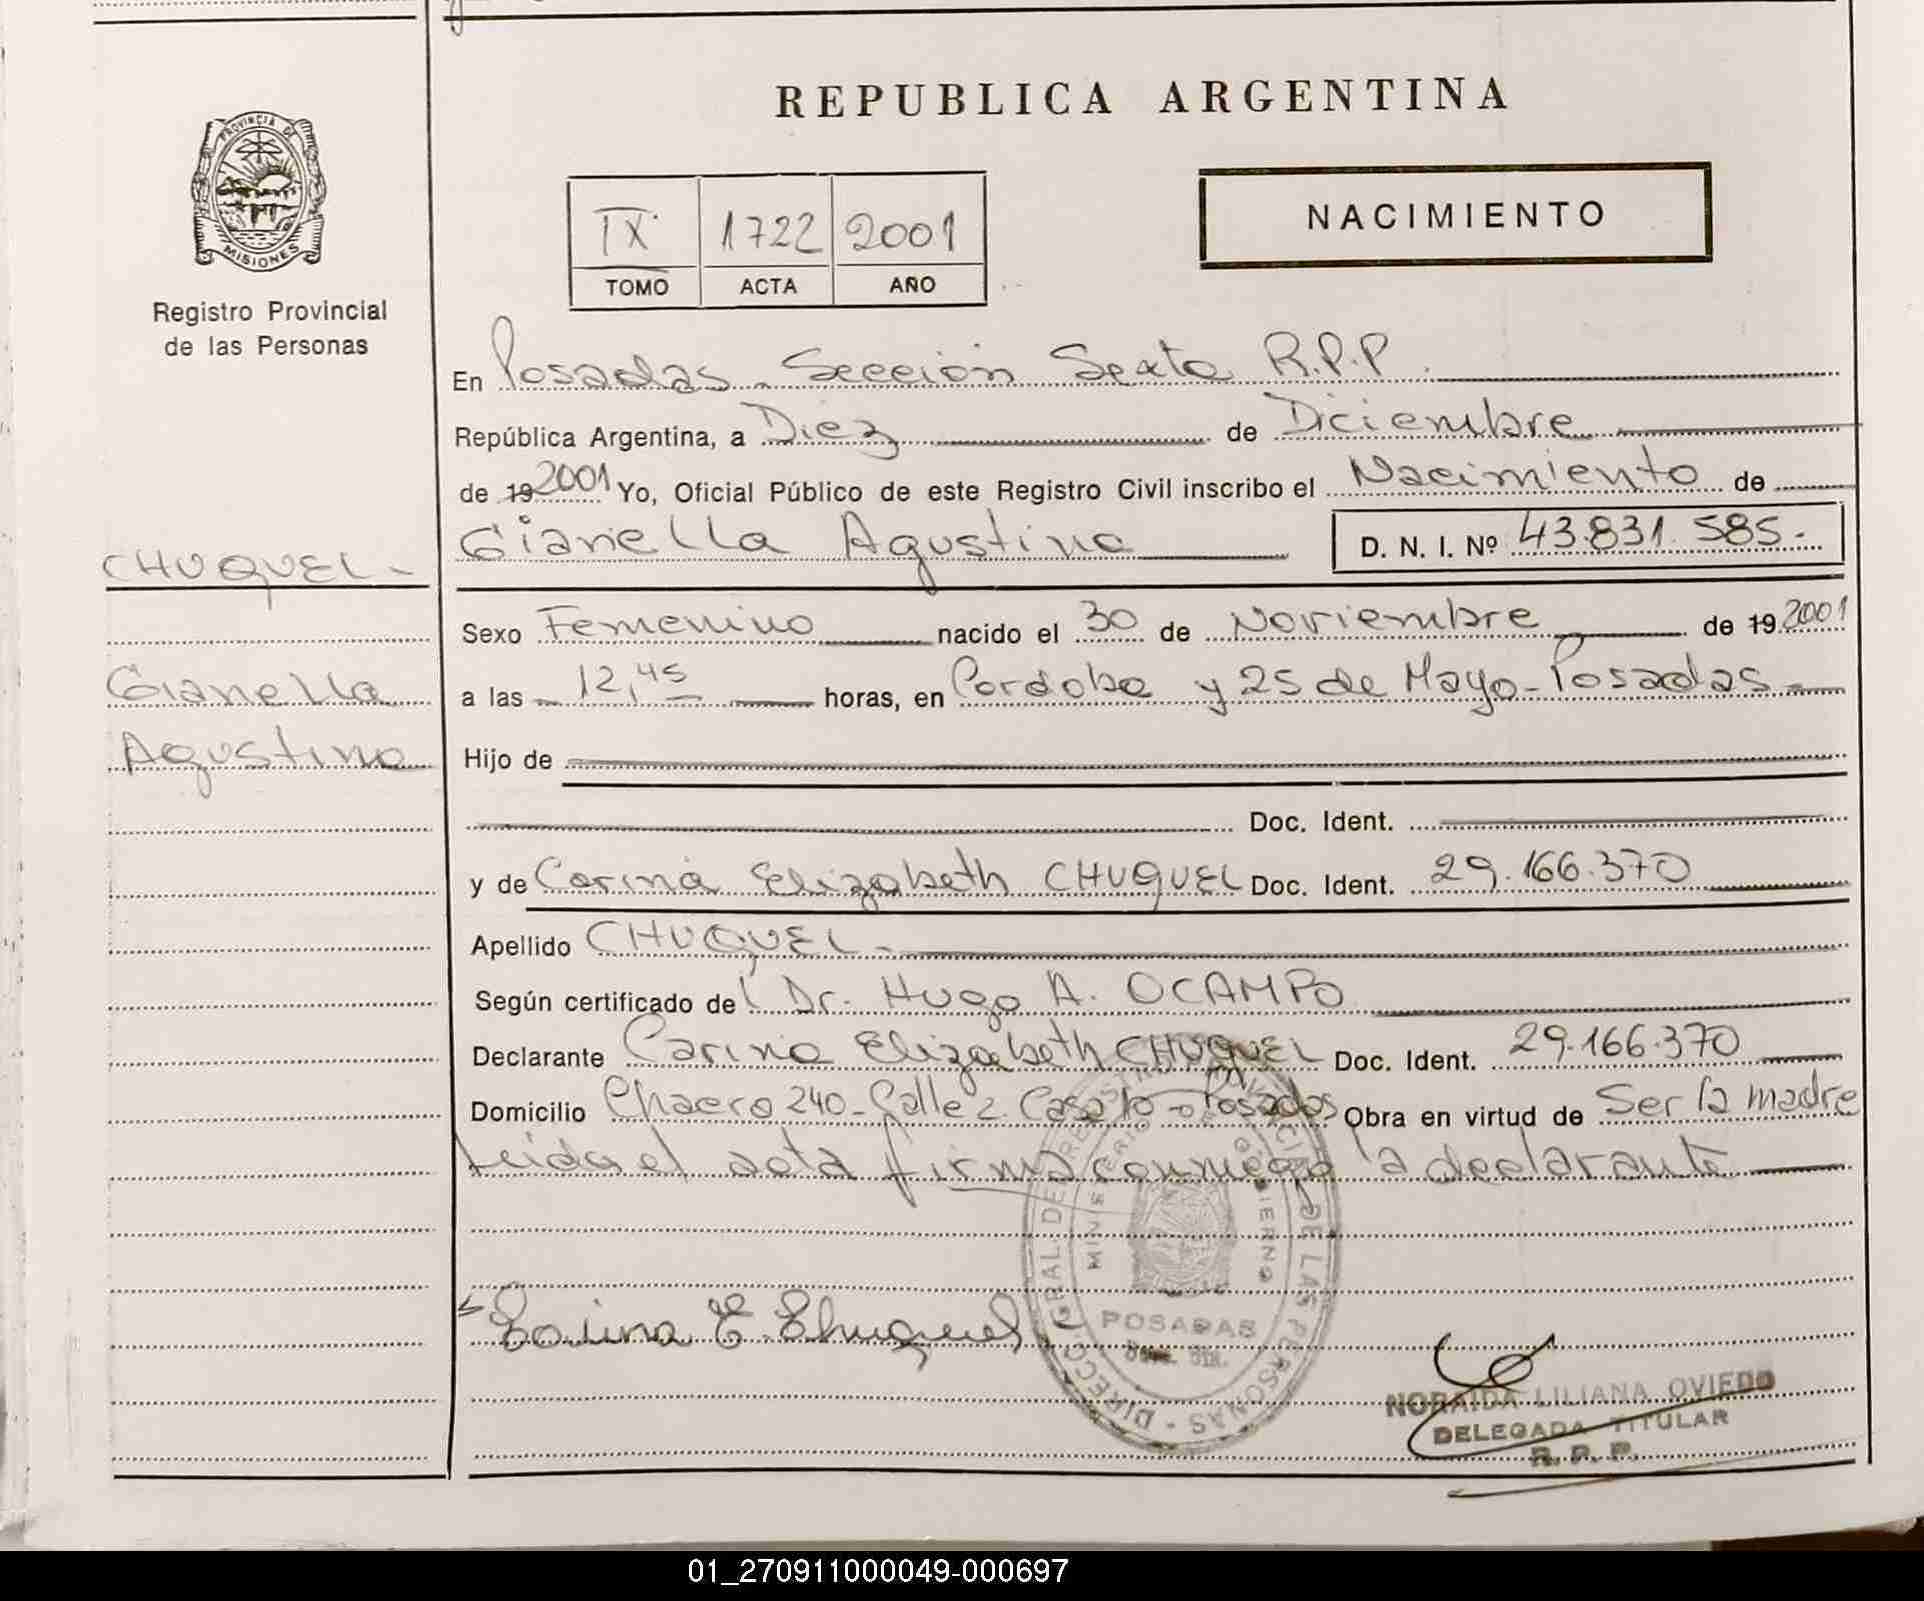 REPUBLICA ARGENTINA
PROVINCIA DE
MISIONES
Registro Provincial
de las Personas
IX 1722 2001
TOMO ACTA AÑO
NACIMIENTO
En Posadas - Sección Sexta R.P.P.
República Argentina, a Diez de Diciembre
de 19 2001 Yo, Oficial Público de este Registro Civil inscribo el Nacimiento de
Gianella Agustina D. N. I. Nº 43.831.585.-
CHUQUEL -
Gianella
Agustina
Sexo Femenino nacido el 30 de Noviembre de 19 2001
a las 12,45 horas, en Cordoba y 25 de Mayo - Posadas -
Hijo de
Doc. Ident.
y de Carina Elizabeth CHUQUEL Doc. Ident. 29.166.370
Apellido CHUQUEL -
Según certificado del Dr. Hugo A. OCAMPO
Declarante Carina Elizabeth CHUQUEL Doc. Ident. 29.166.370
Domicilio 240 - Calle 2 Casa 10 - Posadas Obra en virtud de Ser la madre
Leida el acta firma conmigo la declarante
DIRECC. GRAL. DE REGISTRO PROVINCIAL DE LAS PERSONAS -
MINISTERIO DE GOBIERNO
POSADAS
Carina E. Chuquel
NORAIDA LILIANA OVIEDO
DELEGADA TITULAR
R. P. P.
01_270911000049-000697